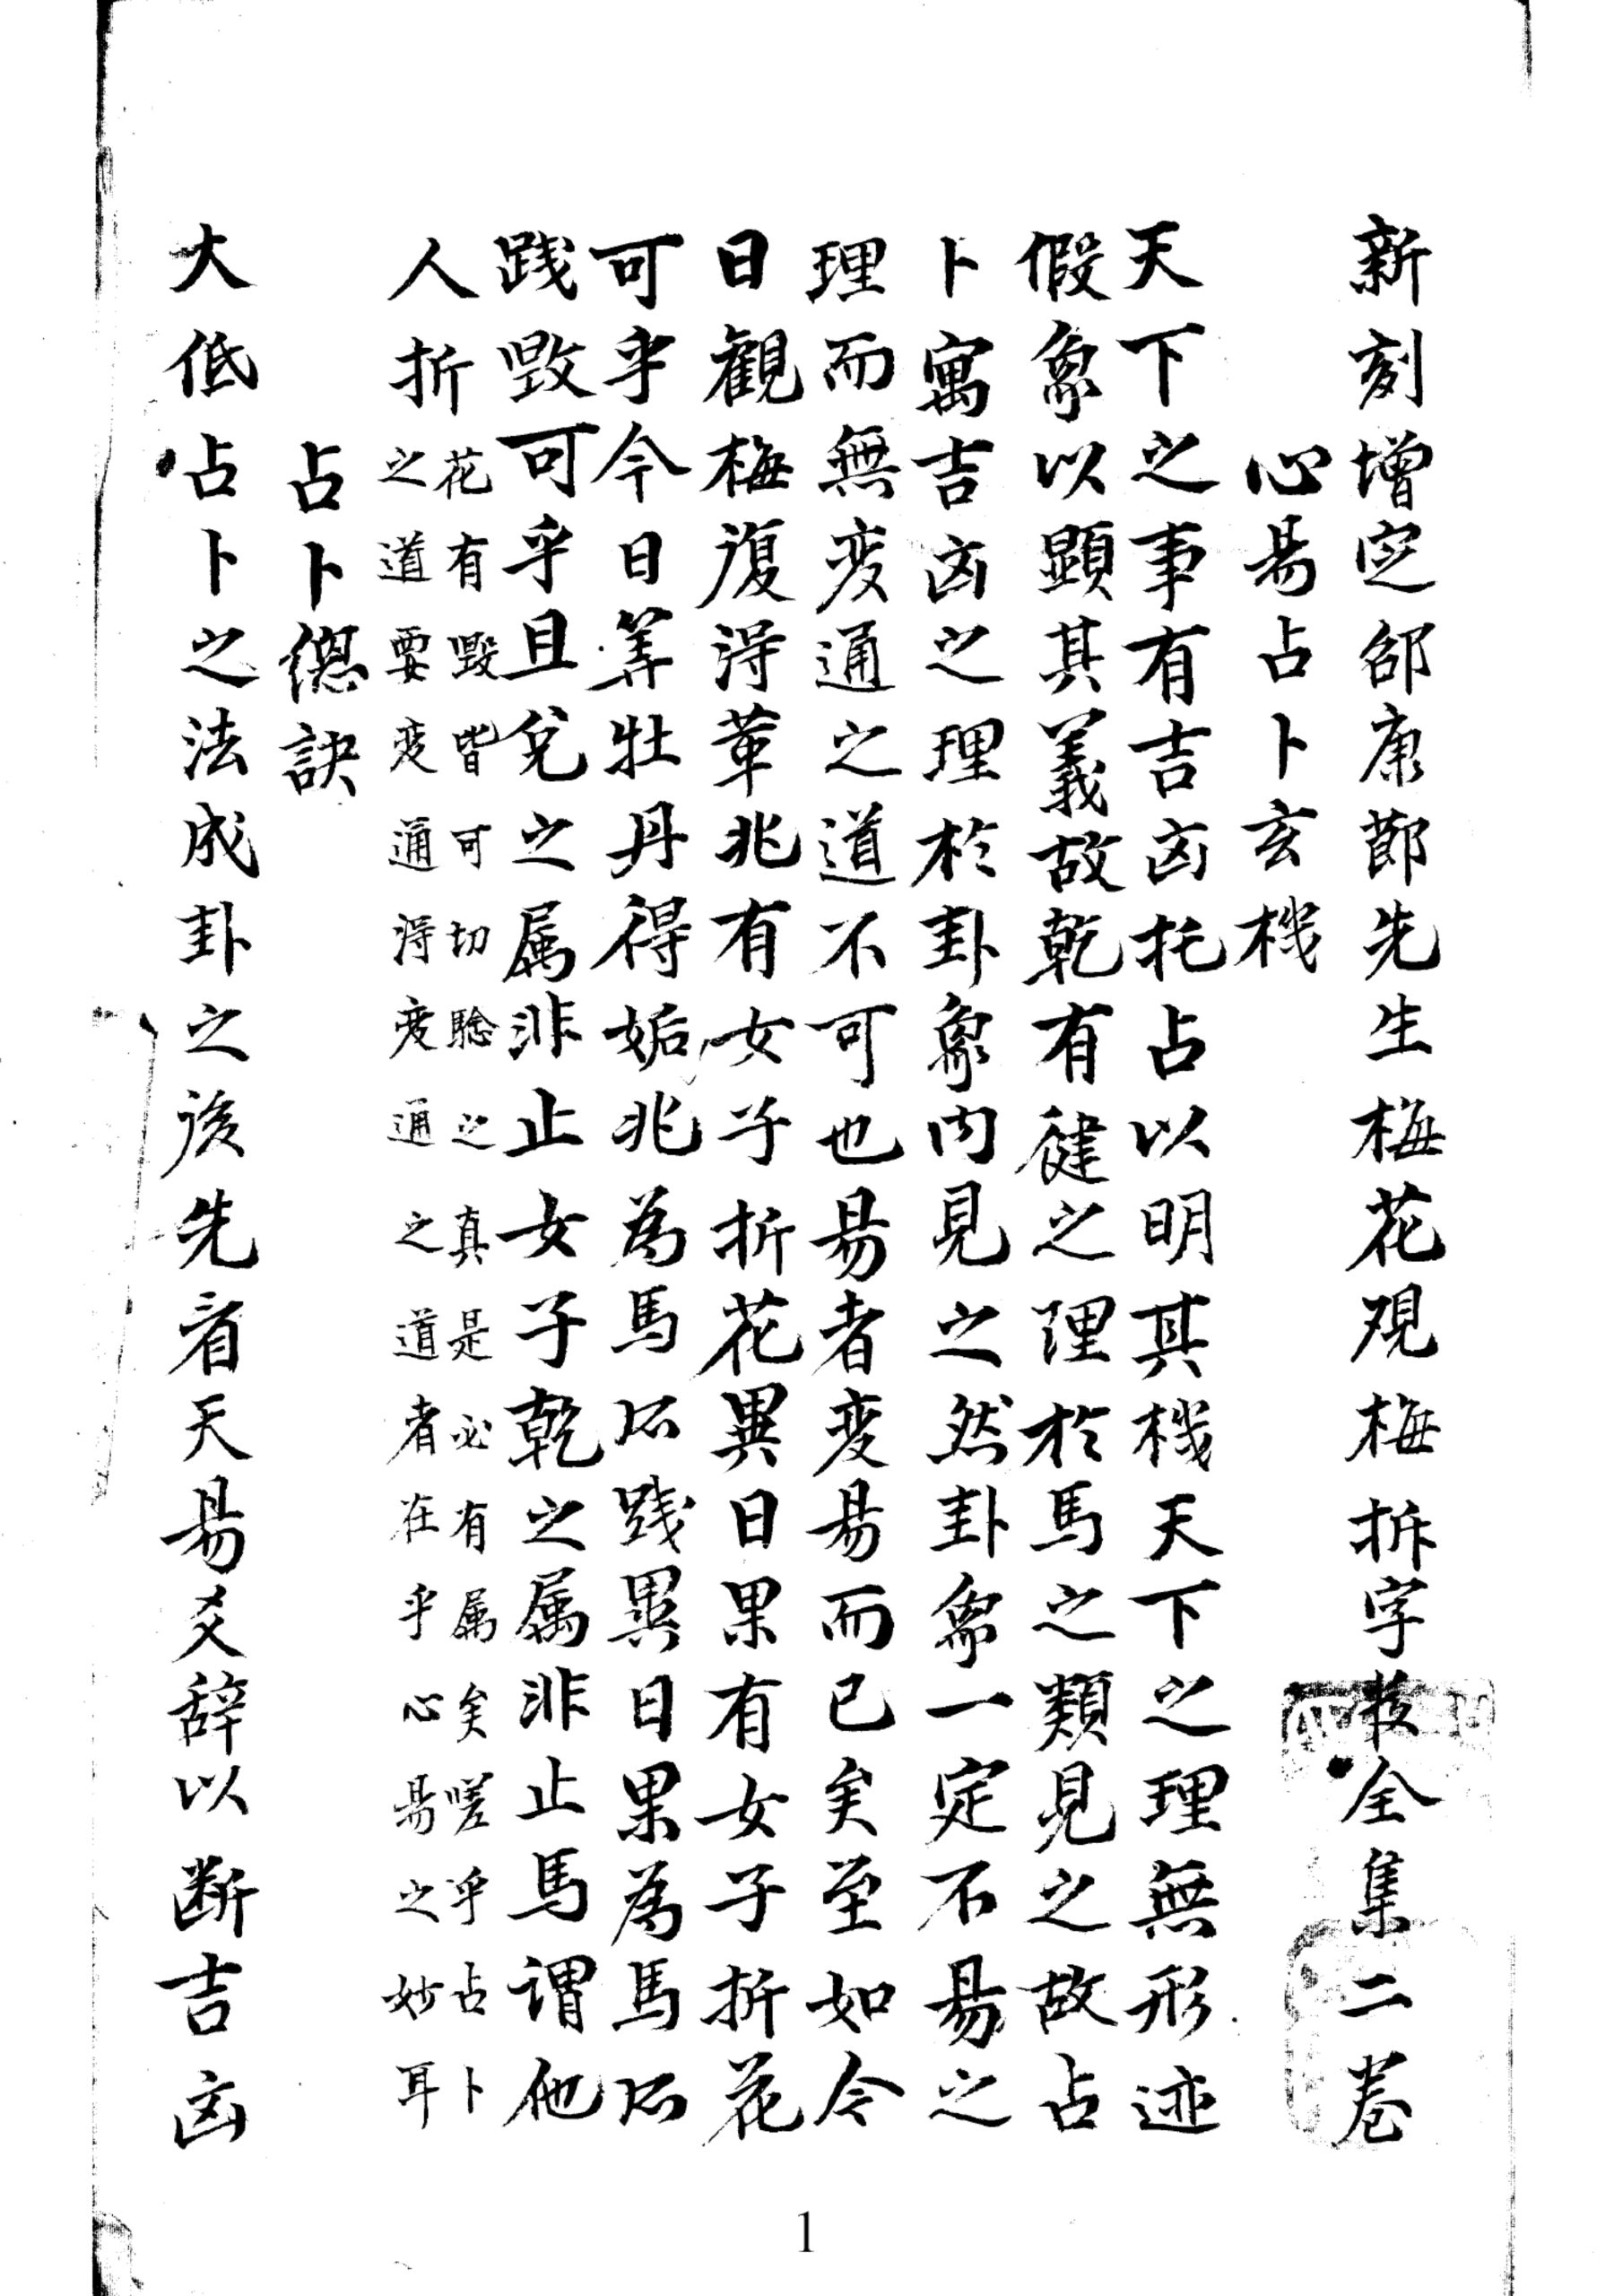 新刻增定邵康節先生梅花观梅拆字数全集二卷
心易占卜玄機
天下之事有吉凶托占以明其機天下之理無形迹
假象以顯其義故乾有健之理於馬之類見之故占
卜寓吉凶之理於卦象内見之然卦象一定不易之
理而無変通之道不可也易者変易而已矣至如今
日觀梅復得革兆有女子折花異日果有女子折花
可乎今日筭牡丹得姤兆為馬所践異日果為馬所
践毁可乎且兌之属非止女子乾之属非止馬谓他
人折花有毁皆可切驗之真是必有属矣嗟乎占卜
之道要变通得变通之道者在乎心易之妙耳
占卜总訣
大低占卜之法成卦之後先看天易爻辞以断吉凶
1